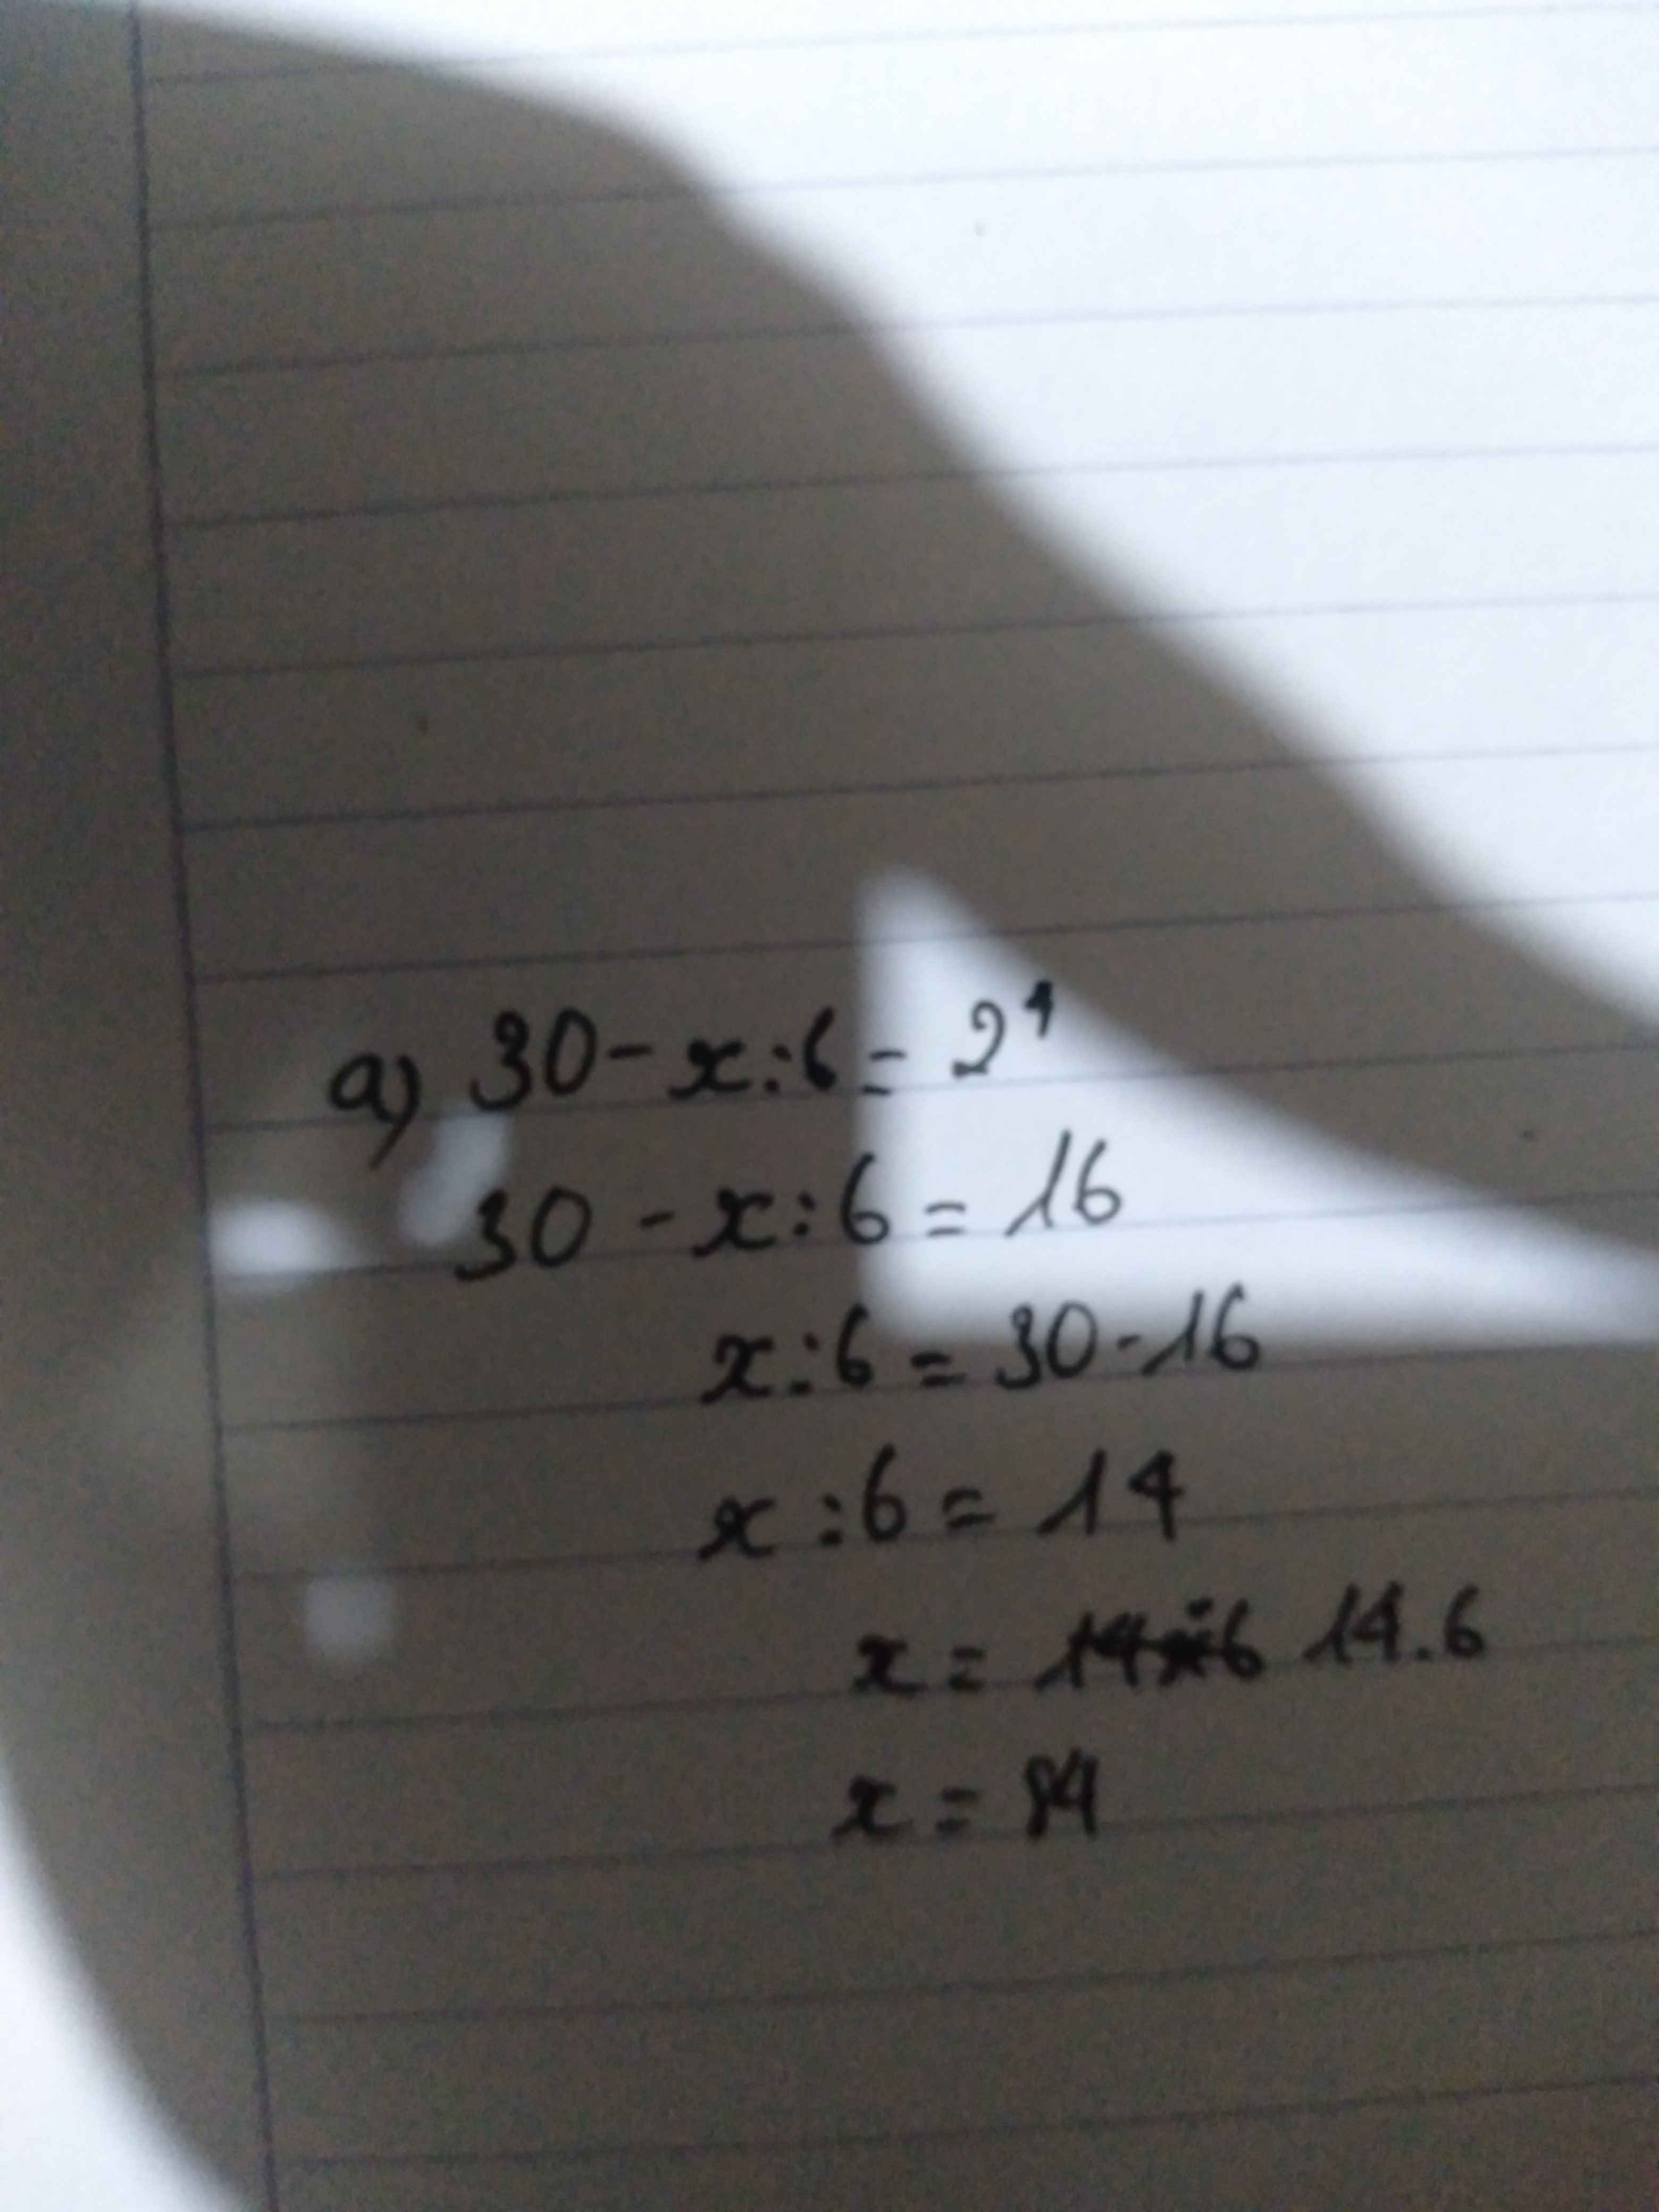 a) 30 - x : 6 = 2⁴
30 - x : 6 = 16
x : 6 = 30 - 16
x : 6 = 14
x = 14.6
x = 84